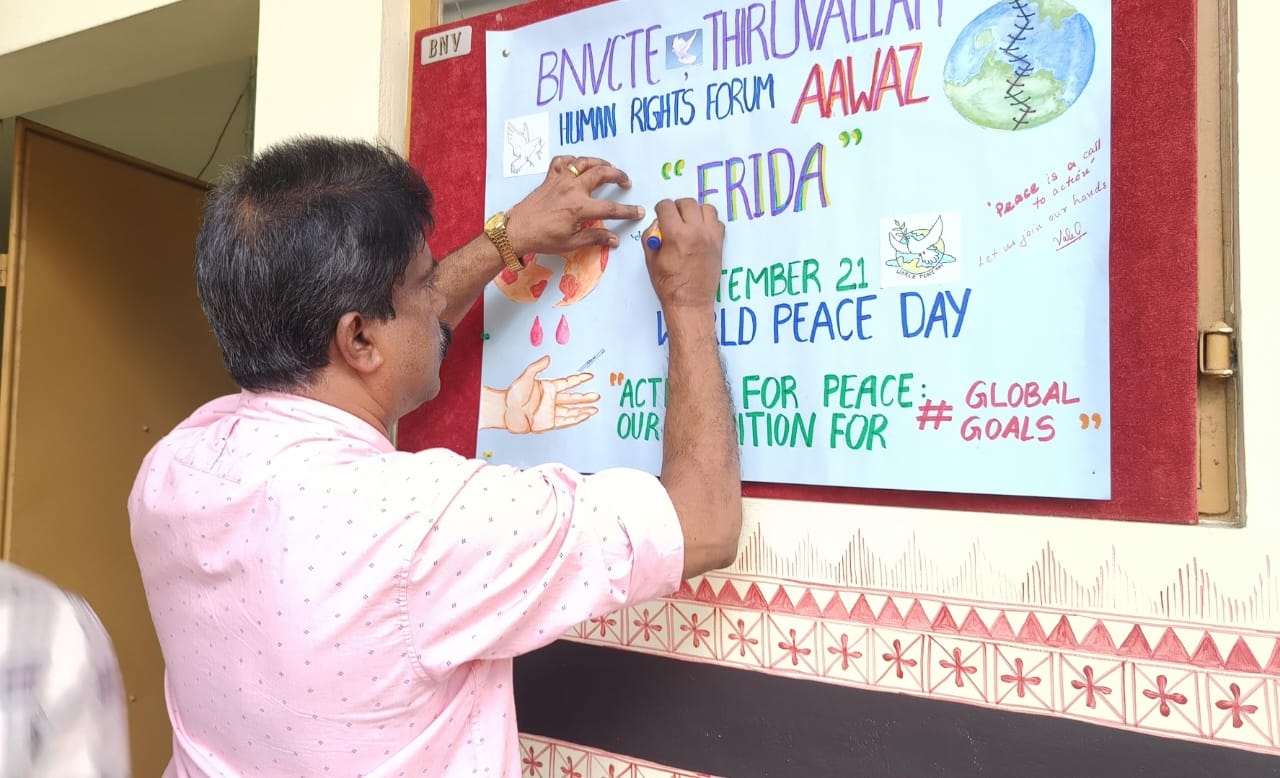 BNV
BNVCTE, THIRUVALLAM
HUMAN RIGHTS FORUM AAWAZ
"FRIDA"
"Peace is a call
to action"
Let us join our hands
TEMBER 21
WORLD PEACE DAY
WORLD PEACE DAY
"ACT FOR PEACE:
OUR ITION FOR # GLOBAL
GOALS"